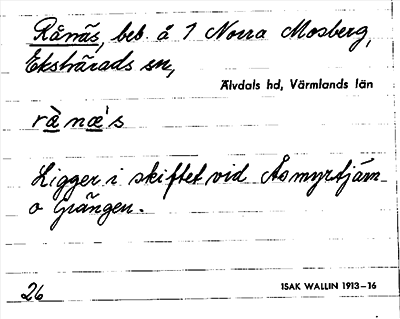 Rånäs, beb. å 1 Norra Mosberg,
Ekshärads sn,
Älvdals hd, Värmlands län
rå̀næ̀'s
Ligger i skiftet vid Åsmyrtjärn
o Grängen.
26
ISAK WALLIN 1913–16